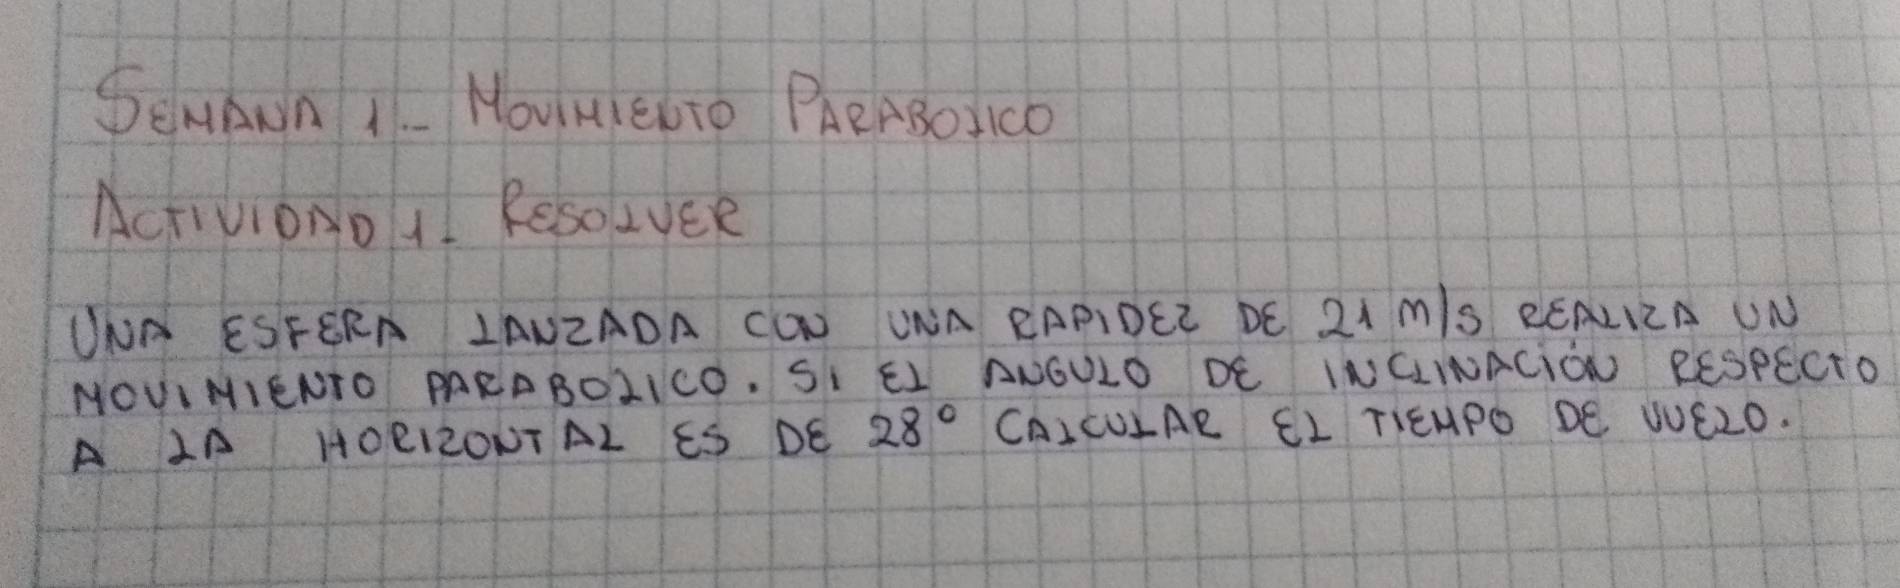 SEMANA 1.- MOVIMIENTO PARABOLICO
ACTIVIDAD 1.- RESOLVER
UNA ESFERA LANZADA CON UNA RAPIDEZ DE 21 m/s REALIZA UN
MOVIMIENTO PARABOLICO. SI EL ANGULO DE INCLINACIÓN RESPECTO
A LA HORIZONTAL ES DE 28° CALCULAR EL TIEMPO DE VUELO.